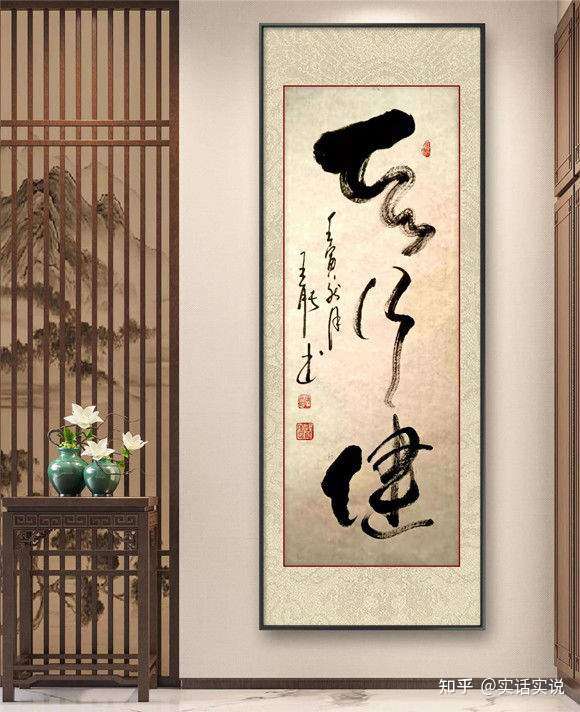 天行健
壬寅秋月
知乎 @实话实说